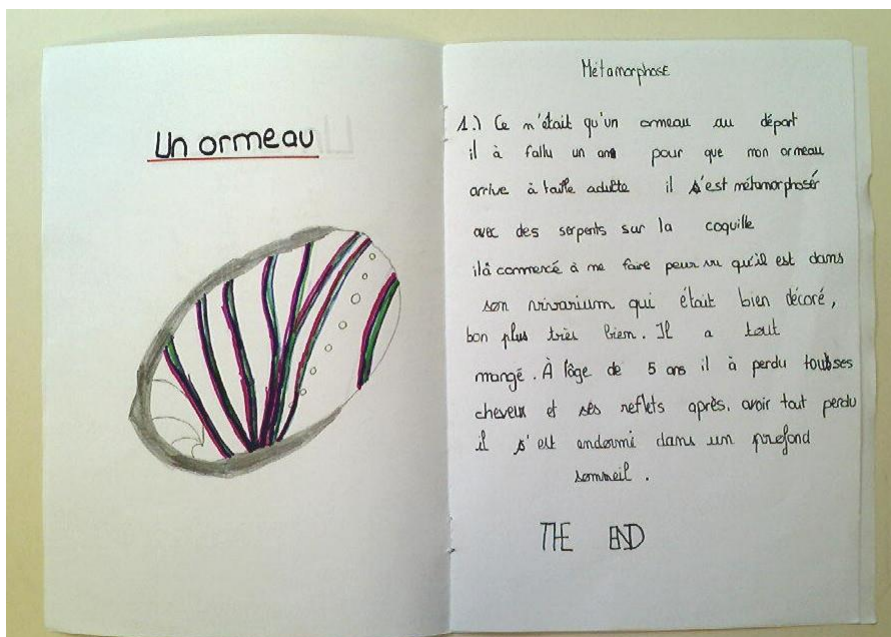 Un ormeau
Métamorphose
1.) Ce n'était qu'un ormeau au départ
il à fallu un an pour que mon ormeau
arrive à taille adulte il s'est métamorphosér
avec des serpents sur la coquille
ilà commencé à me faire peur vu qu'il est dans
son vivarium qui était bien décoré,
bon plus très bien. Il a tout
mangé. À l'âge de 5 ans il à perdu tous ses
cheveux et ses reflets après, avoir tout perdu
il s'est endormi dans un profond
sommeil.
THE END